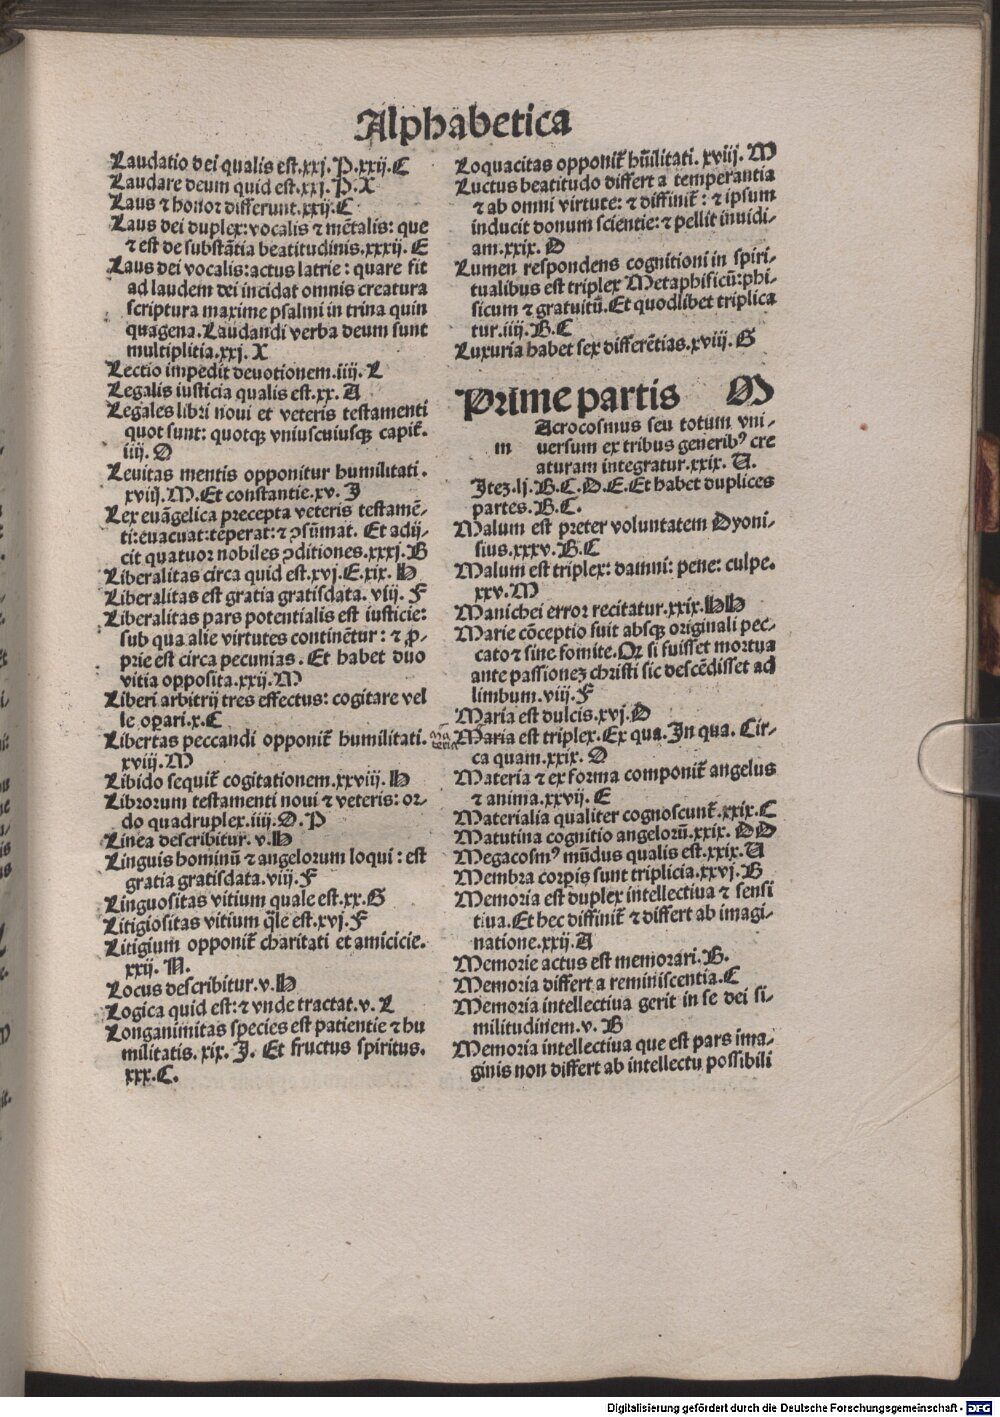 Alphabetica
Laudatio dei qualis est.xxj.P.xxij.C
Laudare deum quid est.xxj.P.X
Laus ⁊ honor differunt.xxij.C
Laus dei duplex:vocalis ⁊ mētalis: que
⁊ est de substātia beatitudinis.xxxij. E
Laus dei vocalis:actus latrie: quare fit
ad laudem dei incidat omnis creatura
scriptura maxime psalmi in trina quin
quagena.Laudandi verba deum sunt
multiplitia.xxj. X
Lectio impedit deuotionem.iiij. L
Legalis iusticia qualis est.xx. A
Legales libri noui et veteris testamenti
quot sunt: quotqꝫ vniuscuiusqꝫ capit̄.
iiij. O
Leuitas mentis opponitur humilitati.
xviij.M.Et constantie.xv. J
Lex euāgelica precepta veteris testamē-
ti:euacuat:teperat:⁊ ꝯsūmat. Et adij-
cit quatuor nobiles ꝯditiones.xxxj.B
Liberalitas circa quid est.xvj.E.xix. H
Liberalitas est gratia gratisdata. viij. F
Liberalitas pars potentialis est iusticie:
sub qua alie virtutes continētur: ⁊ ꝓ-
prie est circa pecunias. Et habet duo
vitia opposita.xxij.M
Liberi arbitrij tres effectus: cogitare vel
le operari.x.C
Libertas peccandi opponit̄ humilitati.
xviij.M
Libido sequit̄ cogitationem.xxviij. H
Librorum testamenti noui ⁊ veteris: or-
do quadruplex.iiij.O.P
Linea describitur. v.H
Linguis hominū ⁊ angelorum loqui: est
gratia gratisdata.viij.F
Linguositas vitium quale est.xx.G
Litigiositas vitium q̄le est.xvj.F
Litigium opponit̄ charitati et amicicie.
xxij. N.
Locus describitur.v.H
Logica quid est:⁊ vnde tractat.v. L
Longanimitas species est patientie ⁊ hu
militatis. xix. J. Et fructus spiritus.
xxx.C.
Loquacitas opponit̄ hūilitati. xviij. M
Luctus beatitudo differt a temperantia
⁊ ab omni virtute: ⁊ diffinit̄: ⁊ ipsum
inducit donum scientie: ⁊ pellit inuidi-
am.xxix. O
Lumen respondens cognitioni in spiri-
tualibus est triplex Metaphisicū:phi-
sicum ⁊ gratuitū.Et quodlibet triplica
tur.iiij.B.C
Luxuria habet sex differētias.xviij. G
Prime partis M
m Acrocosmus seu totum vni-
uersum ex tribus generibꝰ cre
aturam integratur.xxix. A.
Iteꝫ.lj.B.C.D.E.Et habet duplices
partes.B.C.
Malum est preter voluntatem Dyoni-
sius.xxxv.B.C
Malum est triplex: damni: pene: culpe.
xxv.M
Manichei error recitatur.xxix.HH
Marie cōceptio fuit absqꝫ originali pec-
cato ⁊ sine fomite.Qr si fuisset mortua
ante passioneꝫ christi sic descēdisset ad
limbum.viij.F
Maria est dulcis.xvj.O
Maria est triplex.Ex qua.In qua.Cir-
ca quam.xxix. O
Materia ⁊ ex forma componit̄ angelus
⁊ anima.xxvij. E
Materialia qualiter cognoscunt̄.xxix.C
Matutina cognitio angelorū.xxix. DD
Megacosmꝰ mūdus qualis est.xxix.A
Membra corpis sunt triplicia.xxvj.B
Memoria est duplex intellectiua ⁊ sensi
tiua.Et hec diffinit̄ ⁊ differt ab imagi-
natione.xxij.A
Memorie actus est memorari.B.
Memoria differt a reminiscentia.C
Memoria intellectiua gerit in se dei si-
militudinem.v. B
Memoria intellectiua que est pars ima-
ginis non differt ab intellectu possibili
Digitalisierung gefördert durch die Deutsche Forschungsgemeinschaft - DFG